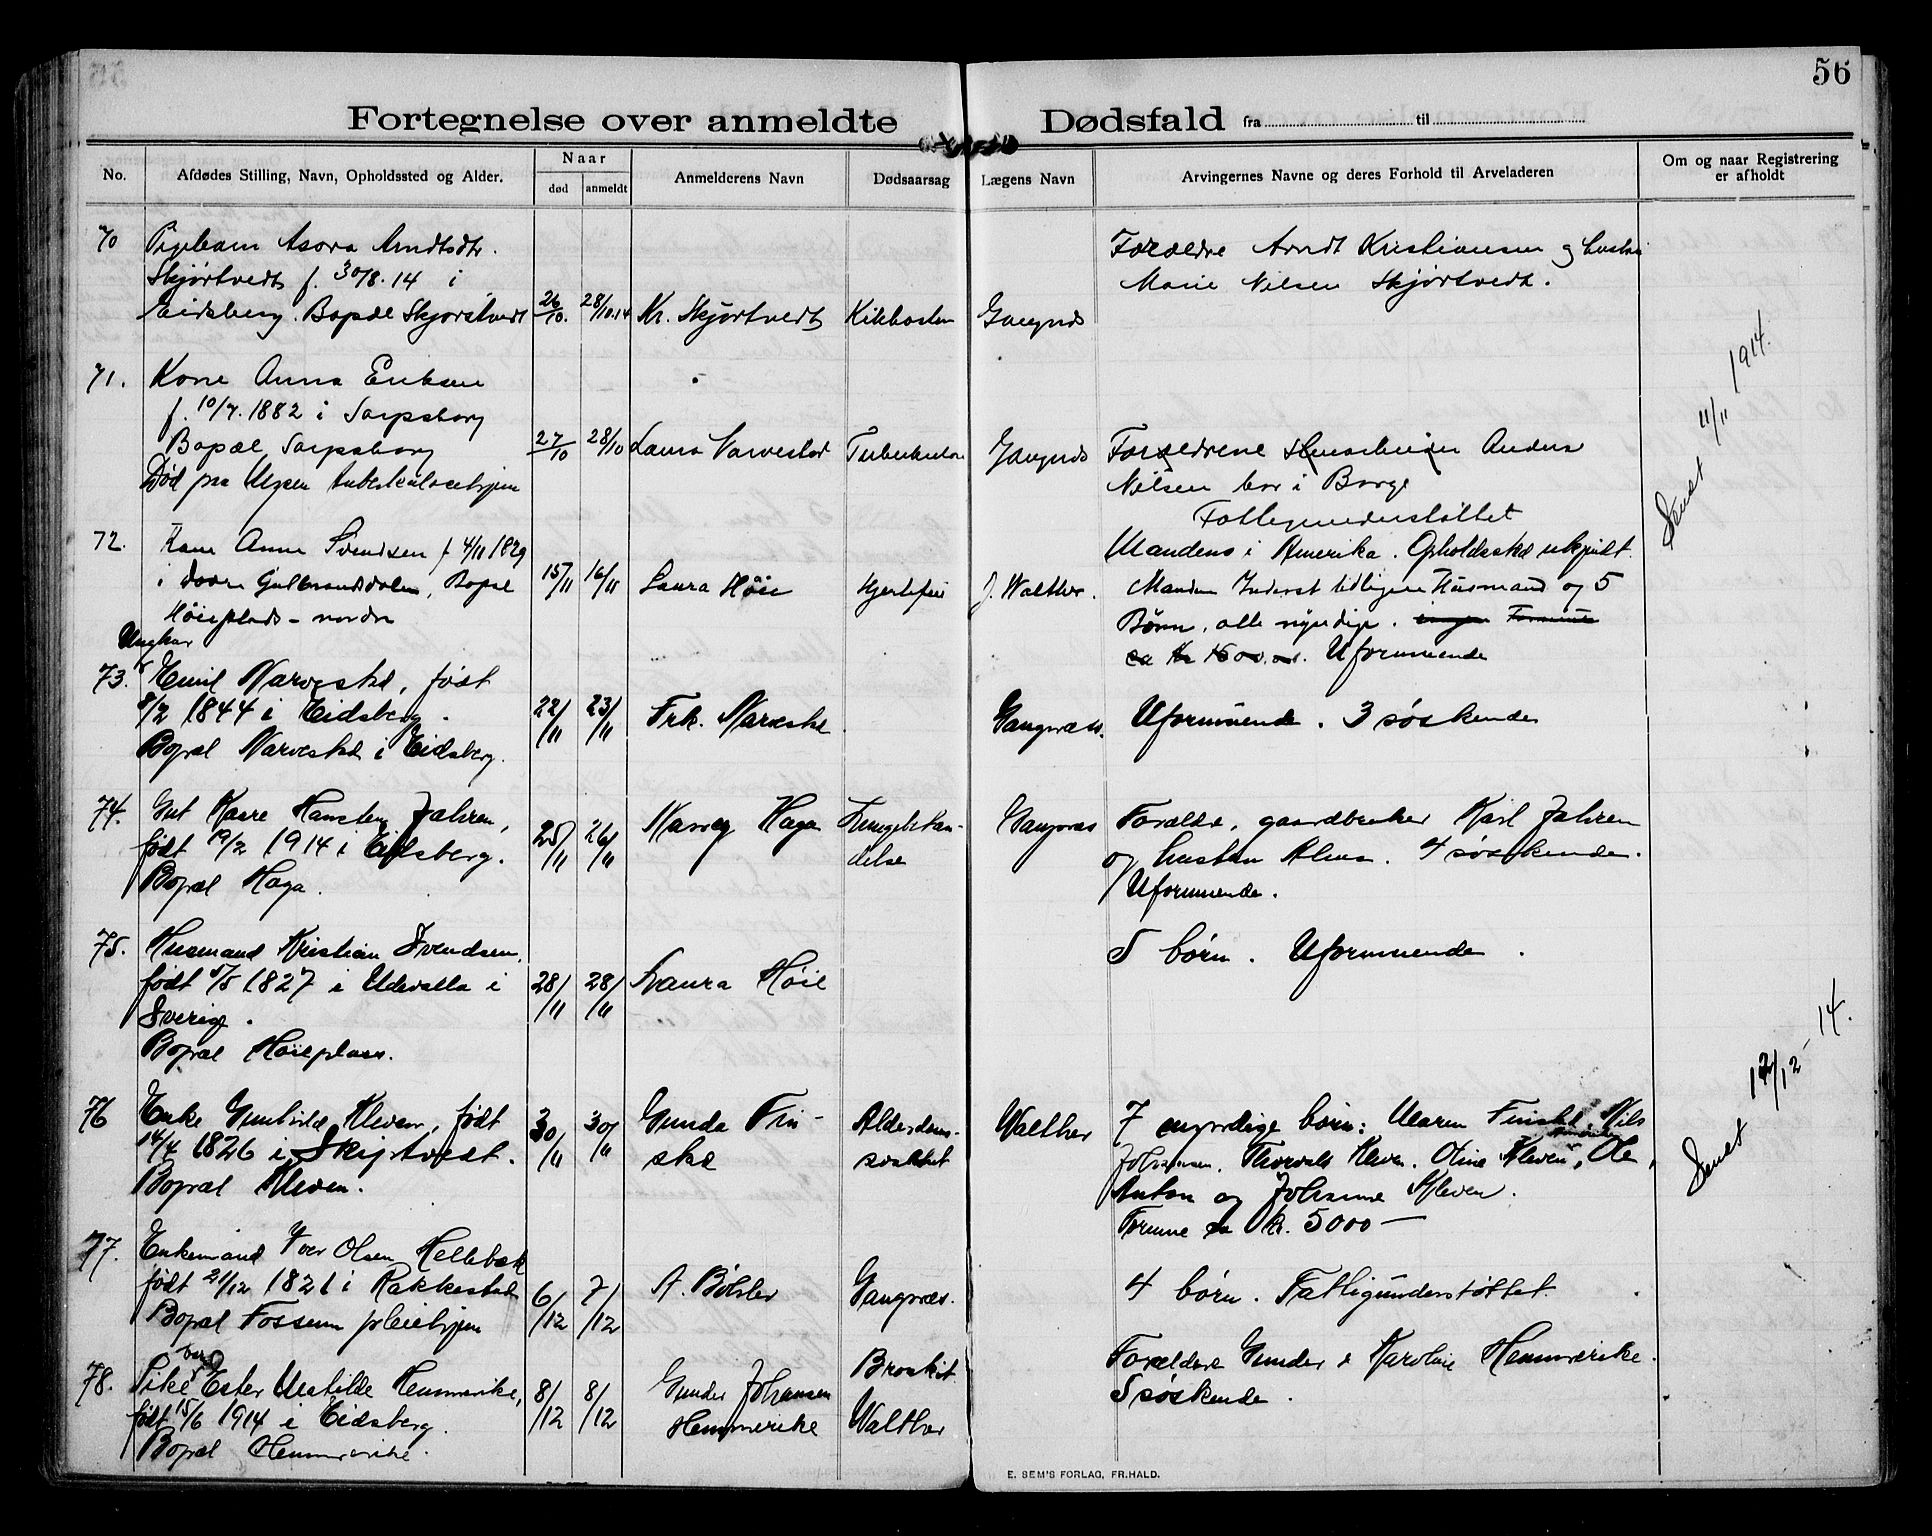 56
Fortegnelse over anmeldte Dødsfald fra til
No.
Afdødes Stilling, Navn, Opholdssted og Alder.
Naar
død
anmeldt
Anmelderens Navn
Dødsaarsag
Lægens Navn
Arvingernes Navne og deres Forhold til Arveladeren
Om og naar Registrering
er afholdt
70
Pigebarn Asora Arndtsdtr.
Skjørtvedt f. 30/8.14 i
Eidsberg. Bopæl Skjørtvedt
26/10.
28/10.14
Kr. Skjørtvedt
Kikhosten
Gangnæs
Forældre Arndt Kristiansen og hustru
Marie Nilsen Skjørtvedt.
71.
Kone Anna Eriksen
f. 10/7.1882 i Sarpsborg
Bopæl Sarpsborg
Død paa Tuberkulosehjem
27/10
28/10
Laura Narvestad
Tuberkulose
Gangnæs
Forældrene Anders
Nilsen bor i Borge
Fattigunderstøttet
Mandens i Amerika. Opholdssted
Sendt 11/11 1914.
72.
Kone Anne Svendsen f 4/11 1829
i Dovre Gulbrandsdalen, Bopæl
Høieplads - nordre
15/11
16/11
Laura Høie
Hjertefeil
J. Walther.
Manden Inderst tidligere Husmand og 5
Børn, alle myndige. ingen Formue
ca Kr 1500.00. Uformuende
73.
Ungkar
Emil Narvestad, født
8/2 1844 i Eidsberg.
Bopæl Narvestad i Eidsberg.
22/11
23/11
Frk. Narvestad
Gangnæss.
Uformuende. 3 søskende
74.
Gut Kaare Hansteen Jahren,
født 19/2 1914 i Eidsberg.
Bopæl Haga.
25/11
26/11
Haga
Lungebetæn-
delse
Gangnæs
Forældre, gaardbruker Karl Jahren
og hustru. 4 søskende.
Uformuende.
75.
Husmand Kristian Svendsen,
født 5/5 1827 i Udevalla i
Sverige.
Bopæl Høieplass.
28/11
28/11
Laura Høie
5 børn. Uformuende.
76
Enke Gunhild Kleven, født
14/4 1826 i Skiptvedt.
Bopæl Kleven.
30/11
30/11
Gunda Fin-
stad
Alderdoms-
svakhet
Walther
7 myndige børn: Maren Finstad, Nils
Johansen, Thorvald Kleven, Oline Kleven, Ole,
Anton og Johanne Kleven.
Formue ca kr. 5000 —
Sendt 12/12 - 14.
77.
Enkemand Iver Olsen Hellebæk
født 21/12 1821 i Rakkestad
Bopæl Fossum pleiehjem
6/12
7/12
A. Bøhler
Gangnæs.
4 børn. Fattigunderstøttet.
78.
barn
Pike Ester Matilde Hemmerike,
født 15/6 1914 i Eidsberg.
Bopæl Hemmerike.
8/12
8/12
Gunder Johansen
Hemmerike
Bronkit
Walther
Forældre Gunder & Karoline Hemmerike.
5 søskende.
E. SEM'S FORLAG, FR.HALD.